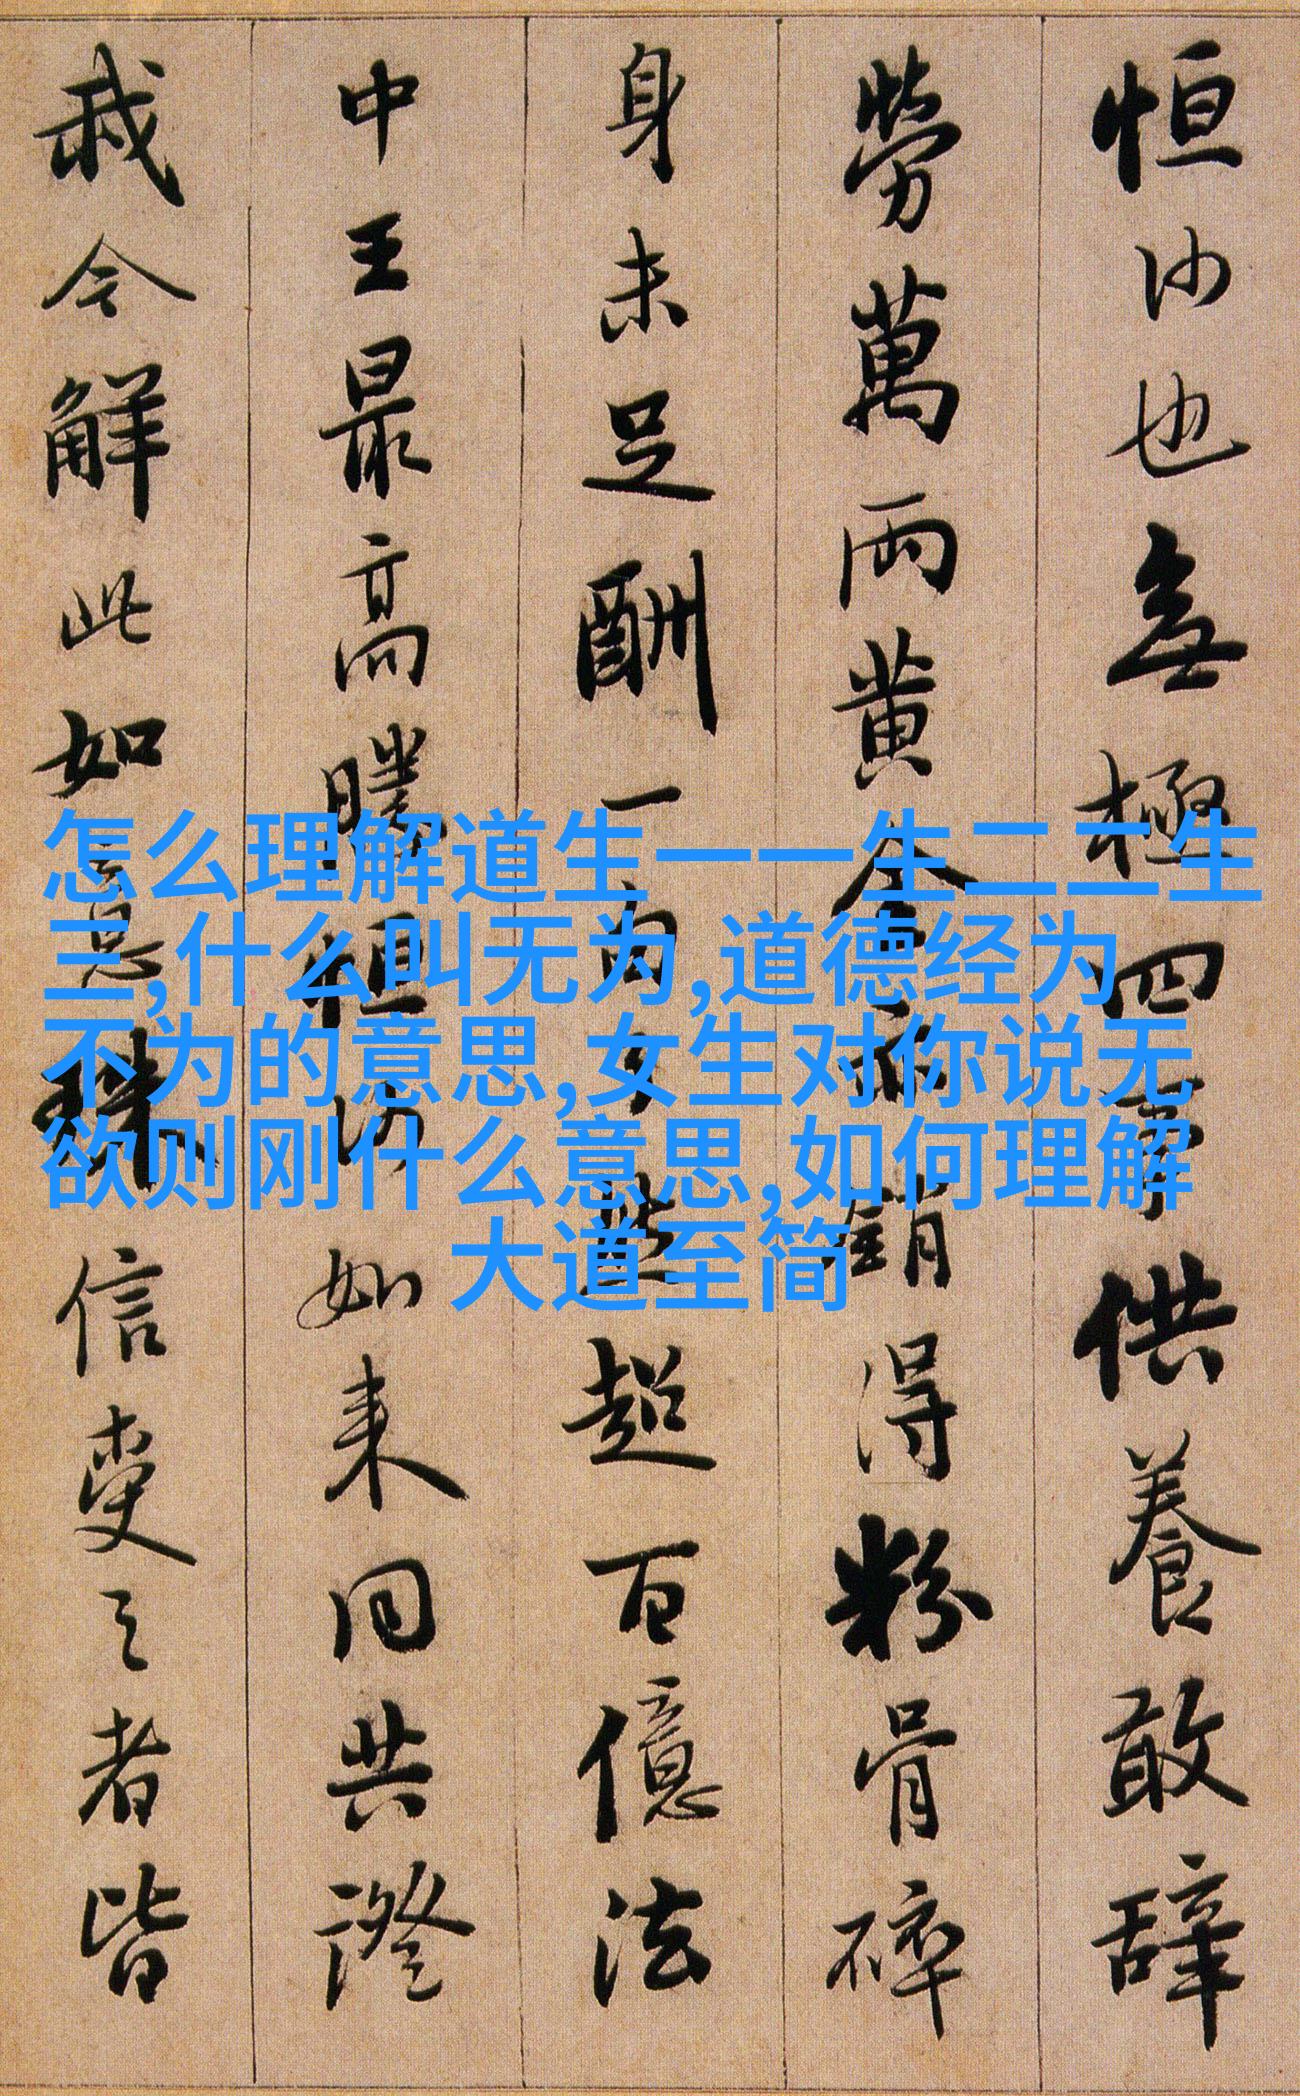 恒沙也無極四事供養敢辭
勞萬兩黄金亦銷得粉骨碎
身未足酬一句了然超百億法
中王最高勝恒沙如来同共證
我今解此如意珠信受之者皆
怎么理解道生一一生二二生
三,什么叫无为,道德经为
不为的意思,女生对你说无
欲则刚什么意思,如何理解
大道至简